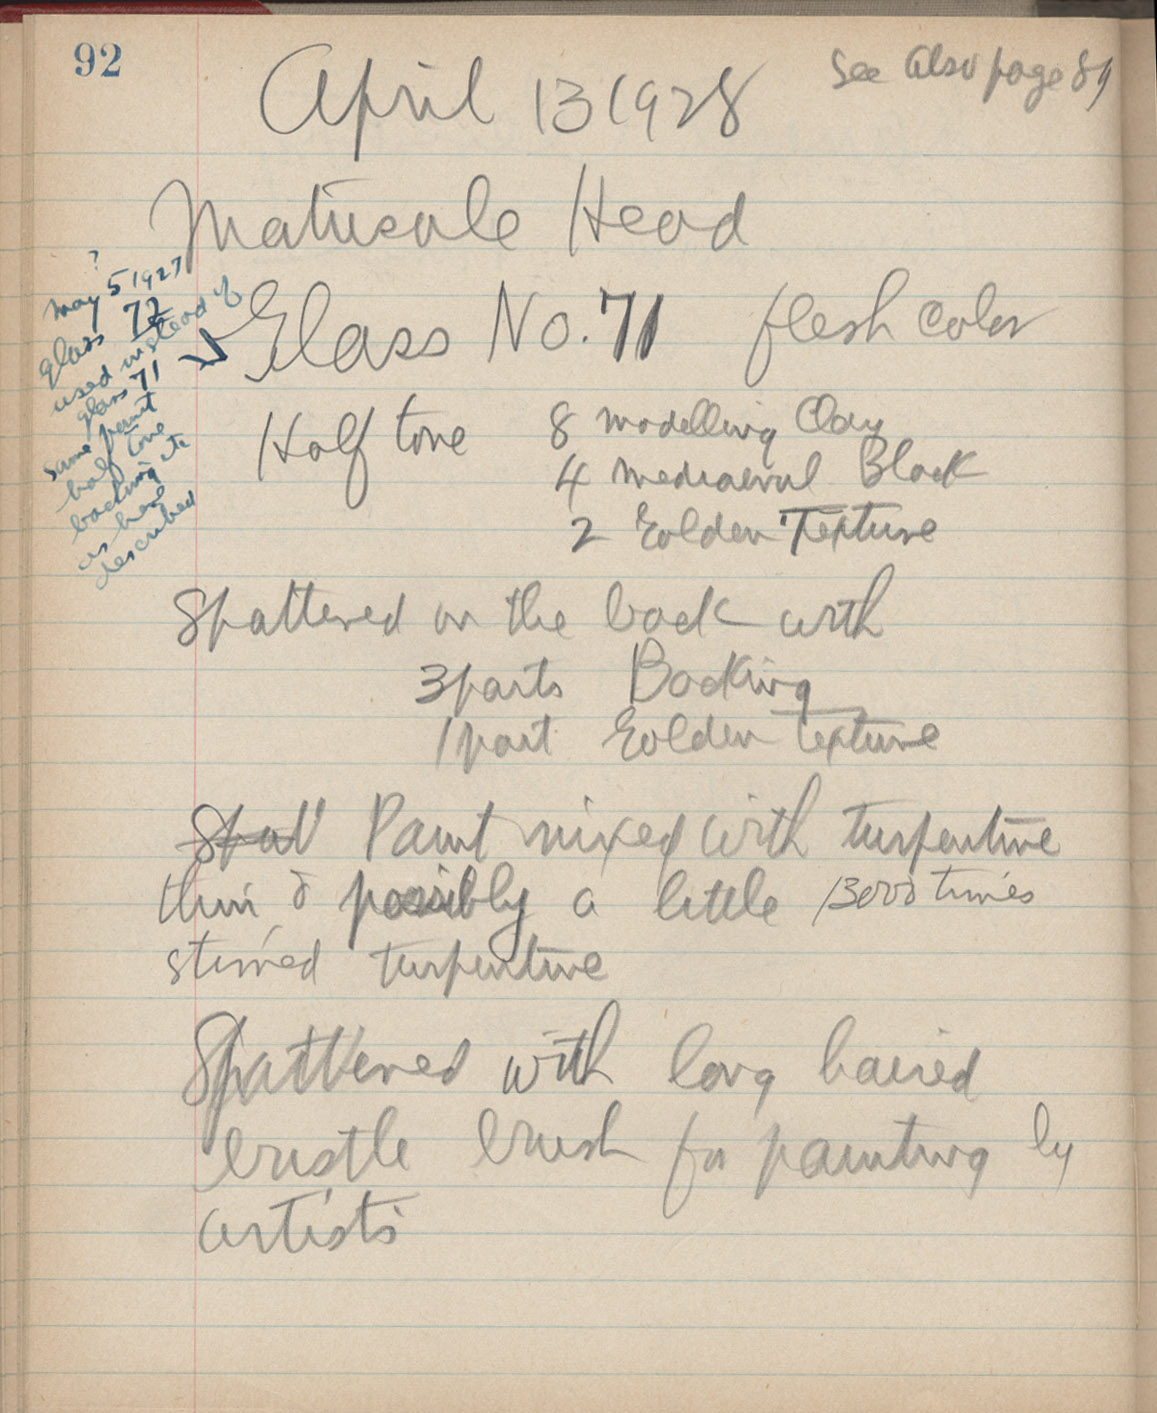 92
See Also page 89
April 13 1928
Matusale Head
?
May 5 1927
glass 72
used instead of
glass 71
same paint
half tone
backing etc
as here
described
Glass No. 71 flesh color
Half tone 8 Modelling Clay
4 Mediaeval Black
2 Golden Texture
Spattered on the back with
3 parts Backing
1 part Golden Texture
Paint mixed with turpentine
thin & possibly a little 13000 times
stirred turpentine
Spattered with long haired
bristle brush for painting by
artists